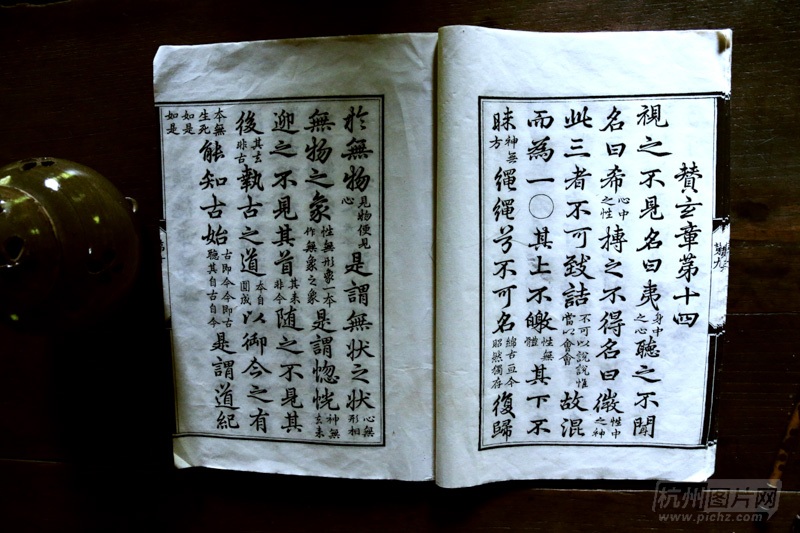 贊玄章第十四
視之不見名曰夷身中之心聽之不聞
名曰希心中之性摶之不得名曰微性中之神
此三者不可致詰不可以說說惟當以會會故混
而為一〇其上不皦性無體其下不
昧神無方繩繩兮不可名綿古亘今昭然獨存復歸
於無物見物便見心是謂無狀之狀心無形相
無物之象性無形象一本作無象之象是謂惚恍神無玄來
迎之不見其首其來非今隨之不見其
後其去非古執古之道本自圓成以御今之有
能知古始古即今今即古聽其自古自今是謂道紀
本無生死如是如是
杭州图片网
www.pichz.com